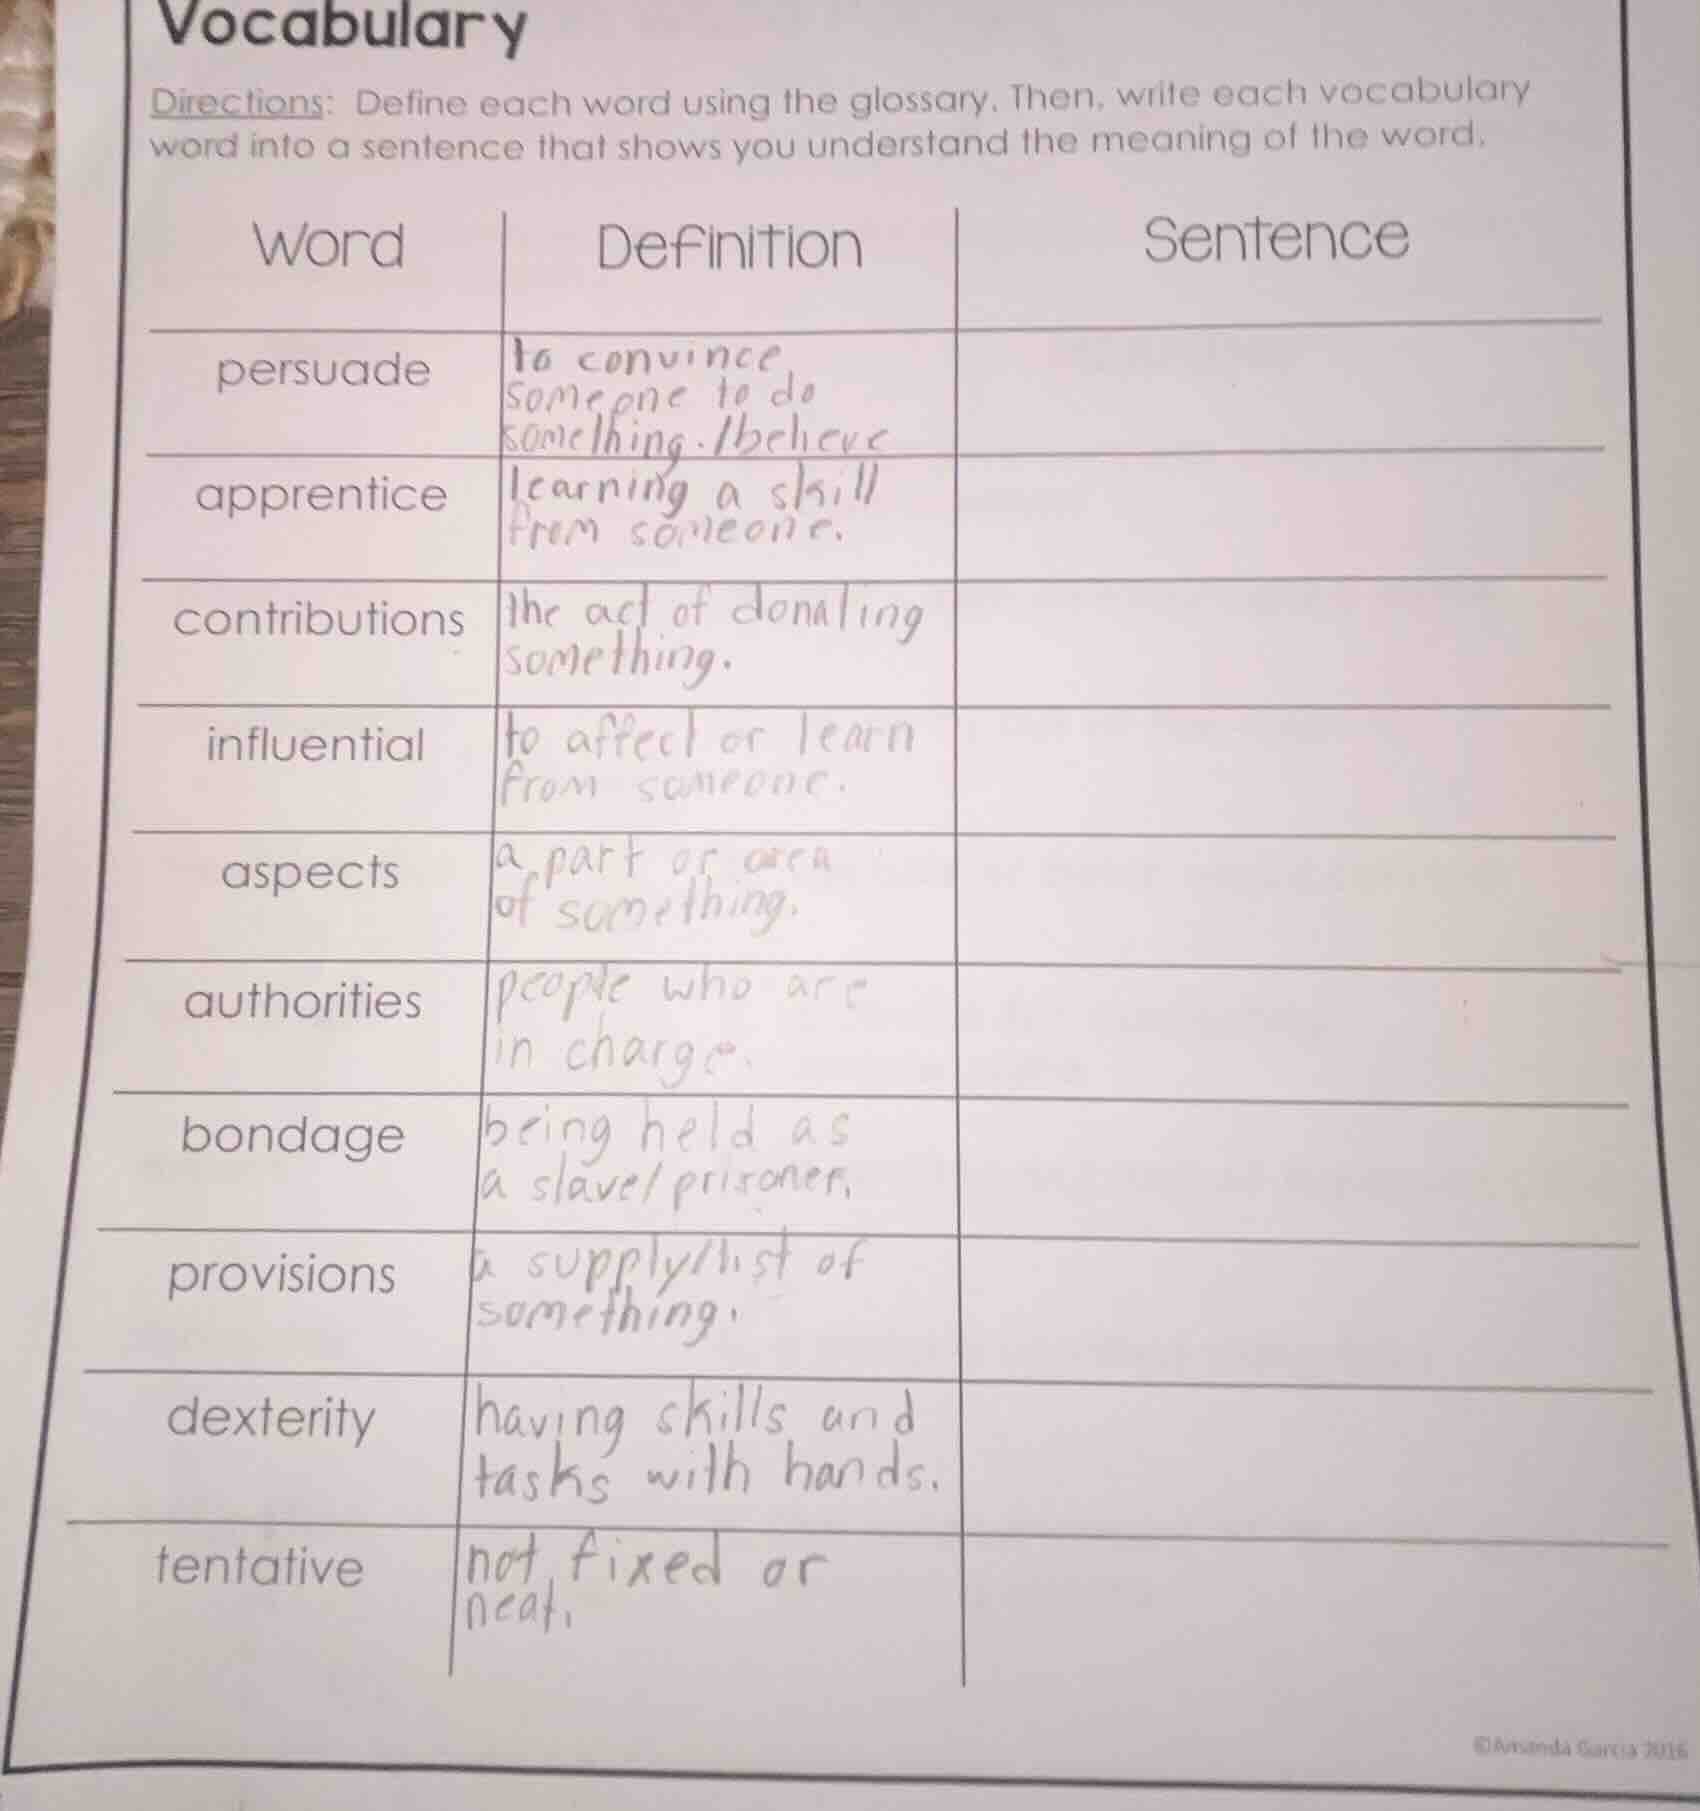 Vocabulary
Directions: Define each word using the glossary. Then, write each vocabulary
word into a sentence that shows you understand the meaning of the word.
Word Definition Sentence
persuade to convince
someone to do
something./believe
apprentice learning a skill
from someone.
contributions the act of donating
something.
influential to affect or learn
from someone.
aspects a part or area
of something.
authorities people who are
in charge.
bondage being held as
a slave/prisoner.
provisions a supply/list of
something.
dexterity having skills and
tasks with hands.
tentative not fixed or
neat.
©Amanda Garcia 2016